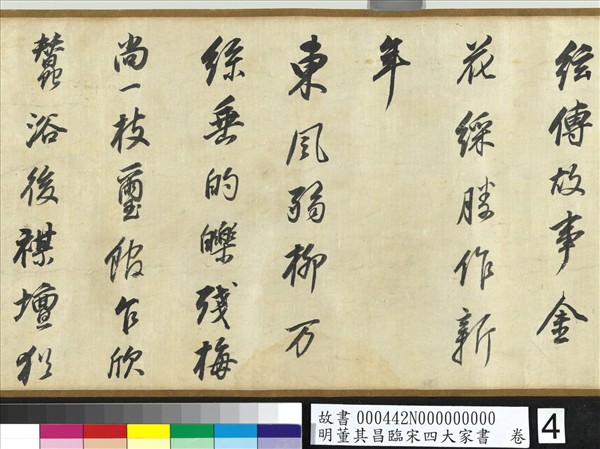 傳故事金
花綵勝作新
年
東風弱柳万
絲垂的皪殘梅
尚一枝璽館乍欣
蠶浴後禖壇猶
故書 000442N000000000
明董其昌臨宋四大家書 卷
4